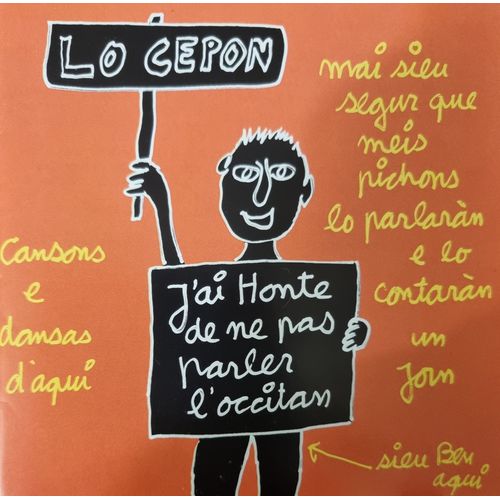 LO CEPON
mai sieu
segur que
meis
pichons
lo parlaràn
e lo
contaràn
un
Jorn
Cansons
e
dansas
d'aquí
J'ai Honte
de ne pas
parler
l'occitan
sieu Ben
aquí